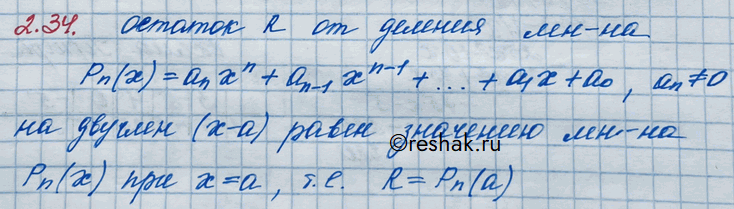 2.34. остаток R от деления мн-на
Pn(x) = anxⁿ + an-1xⁿ⁻¹ + ... + a1x + a0, an ≠ 0
на двучлен (x-a) равен значению мн-на
Pn(x) при x=a, т.е. R = Pn(a)
©reshak.ru